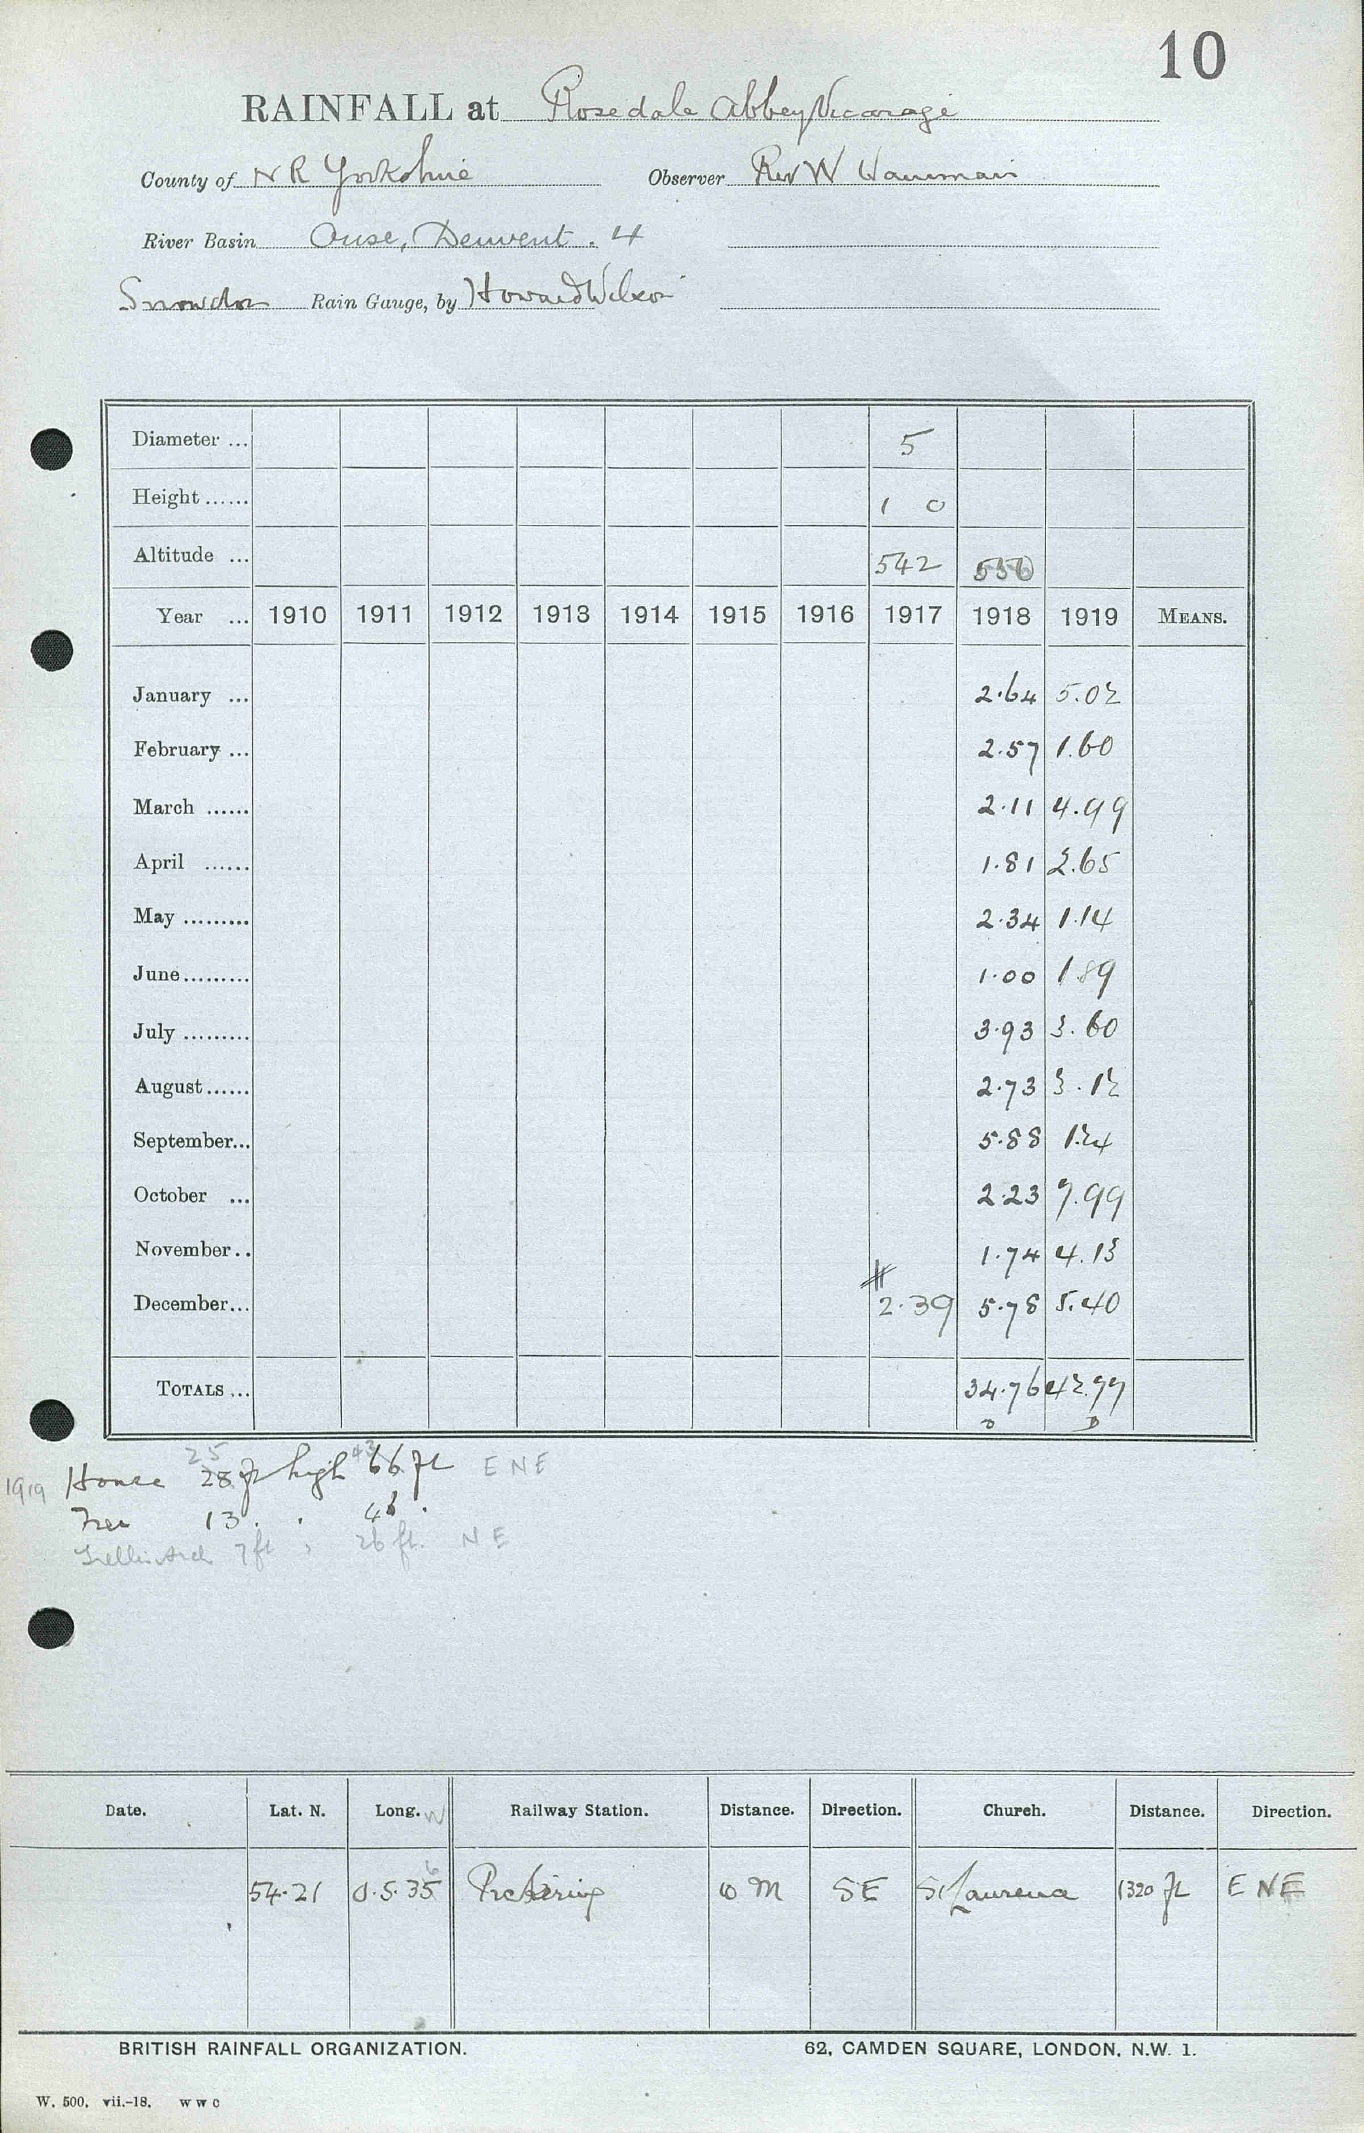 10
RAINFALL at Rosedale Abbey Vicarage
County of N R Yorkshire Observer Rev W Wauman
River Basin Ouse, Derwent. 4
Snowdon Rain Gauge, by Howard Wilson
Diameter ... 5
Height ...... 1 0
Altitude ... 542 536
Year ... 1910 1911 1912 1913 1914 1915 1916 1917 1918 1919 MEANS.
January ... 2.64 5.02
February ... 2.57 1.60
March ...... 2.11 4.99
April ...... 1.81 2.65
May ......... 2.34 1.14
June ......... 1.00 1.89
July ......... 3.93 3.60
August ...... 2.73 3.12
September... 5.88 1.24
October ... 2.23 7.99
November.. 1.74 4.13
December... 2.39 5.78 5.40
TOTALS ... 34.76 42.77
D D
1919 House 28 25 ft high 66 43 ft E N E
Tree 13 . 46 .
Trellis Arch 7 ft , 26 ft. N E
Date. Lat. N. Long. W Railway Station. Distance. Direction. Church. Distance. Direction.
54.21 0.5.35 6 Pickering 10 M SE St Laurence 1320 ft E N E
BRITISH RAINFALL ORGANIZATION. 62, CAMDEN SQUARE, LONDON, N.W. 1.
W. 500. vii.-18. w w c